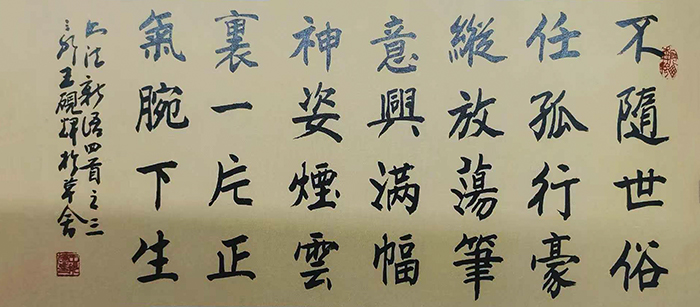 不隨世俗
任孤行豪
縱放蕩筆
意興滿幅
神姿煙雲
裏一片正
氣腕下生
书法新语四首之三
王硯輝於草舍